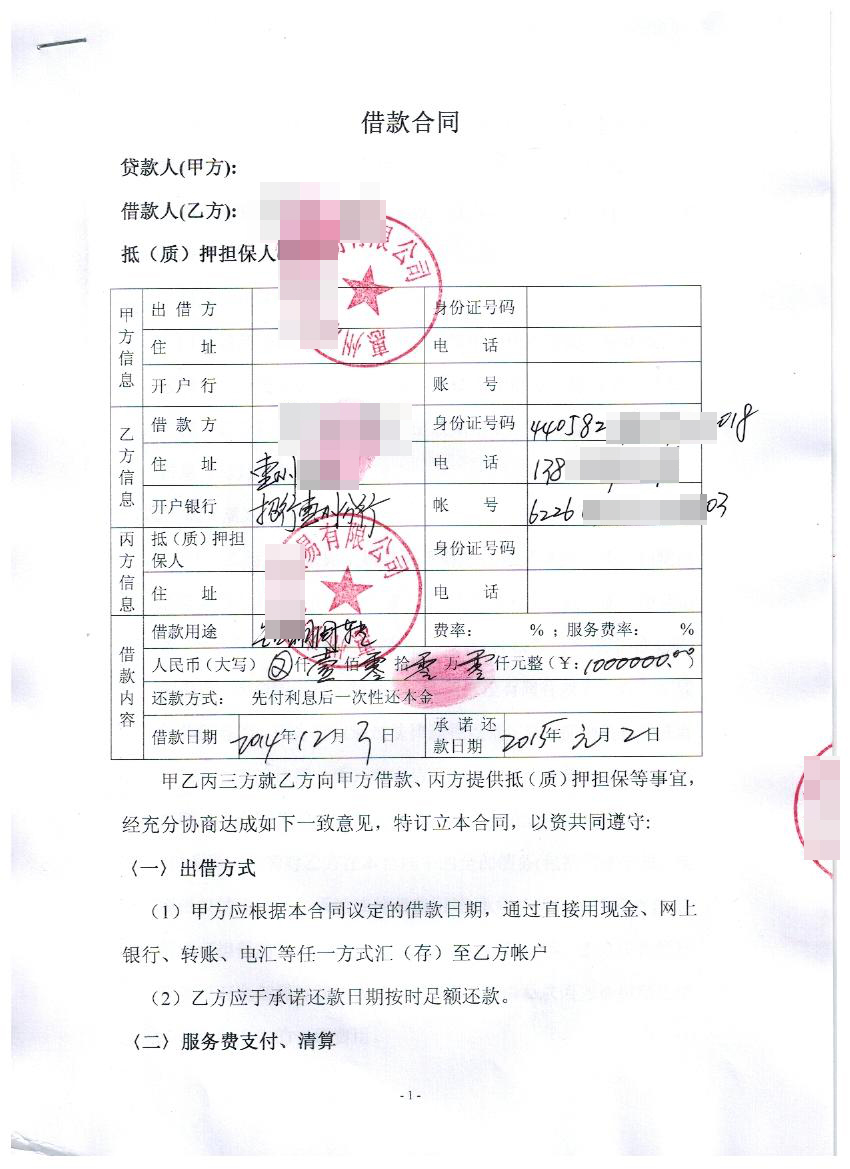 借款合同
贷款人(甲方):
借款人(乙方):
抵（质）押担保人
有限公司
惠州
甲方信息
出借方
身份证号码
住 址
电 话
开户行
账 号
乙方信息
借款方
身份证号码 440582 018
住 址 惠州
电 话 138
开户银行 招行惠州分行
帐 号 6226 03
丙方信息
抵（质）押担保人
易有限公司
身份证号码
住 址
电 话
借款内容
借款用途
费率： %；服务费率： %
人民币（大写） 仟壹佰零拾零万零仟元整（¥：1000000.00）
还款方式： 先付利息后一次性还本金
借款日期 2014年12月3日
承诺还款日期 2015年元月2日
甲乙丙三方就乙方向甲方借款、丙方提供抵（质）押担保等事宜，
经充分协商达成如下一致意见，特订立本合同，以资共同遵守:
〈一〉出借方式
（1）甲方应根据本合同议定的借款日期，通过直接用现金、网上
银行、转账、电汇等任一方式汇（存）至乙方帐户
（2）乙方应于承诺还款日期按时足额还款。
〈二〉服务费支付、清算
- 1 -